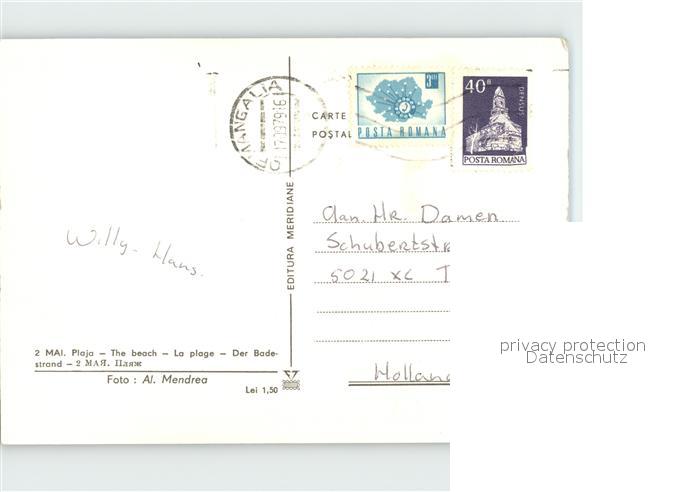 MANGALIA
17.09.79.16
3 LEI
POSTA ROMANA
40 B
DENSUS
POSTA ROMANA
CARTE
POȘTAL
EDITURA MERIDIANE
Willy - Hans.
Aan. Mr. Damen
Schubertstr
5021 XC T
Hollan
2 MAI. Plaja – The beach – La plage – Der Bade-
strand – 2 МАЯ. Пляж
Foto : Al. Mendrea
Lei 1,50
privacy protection
Datenschutz